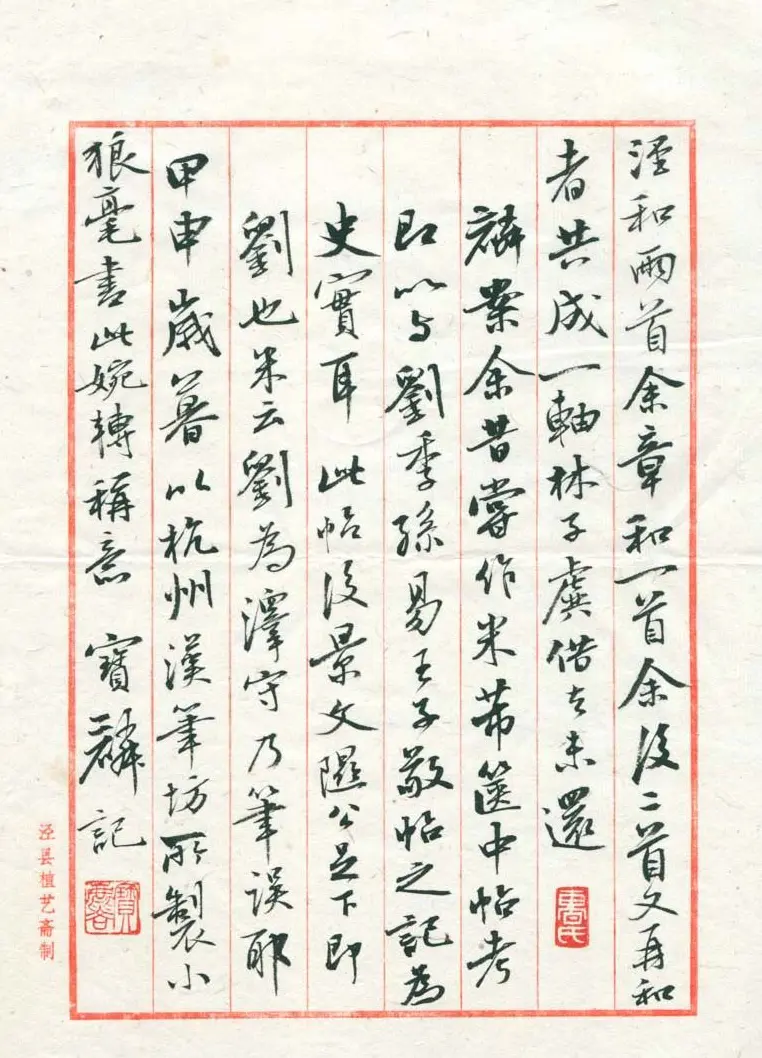 涇和兩首余章和一首余後二首文再和
者共成一軸林子虞借去未還
麟案余昔嘗作米芾篋中帖考
即以与劉季孫易王子敬帖之記為
史實耳 此帖後景文隰公足下即
劉也米云劉為澤守乃筆誤耶
甲申歲暮以杭州漢筆坊所製小
狼毫書此婉轉稱意 寶麟記
泾县植艺斋制